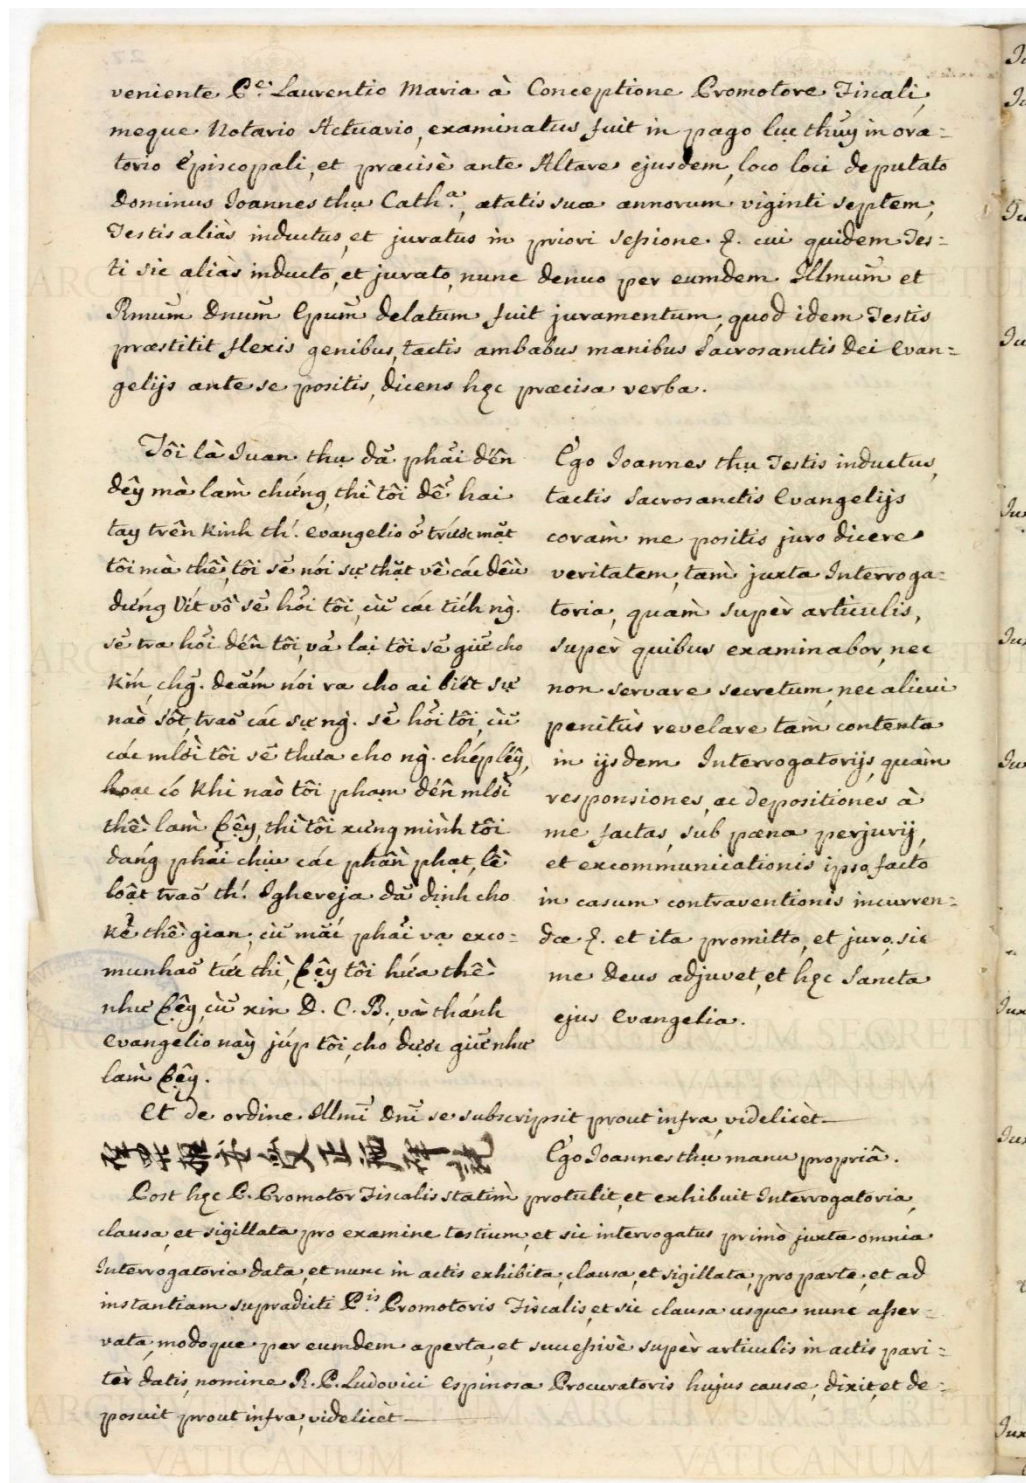 veniente P.e Laurentio Maria à Conceptione Promotore Fiscali,
meque Notario Actuario, examinatus fuit in pago luc thủy in ora=
torio Episcopali, et præcisè ante Altare ejusdem, loco loci deputato
Dominus Joannes thụ Cath.a, ætatis suæ annorum viginti septem,
Testis aliàs inductus, et juratus in priori sessione &. cui quidem Tes=
ti sic aliàs inducto, et jurato, nunc denuo per eumdem Illmum̃ et
Rmum̃ Dnum̃ Epum̃ delatum fuit juramentum, quod idem Testis
præstitit flexis genibus, tactis ambabus manibus Sacrosanctis Dei Evan=
gelijs ante se positis, dicens hęc præcisa verba.
Tôi là Juan thụ đã phải đến
đêy mà làm chứng, thì tôi để hai
tay trên Kinh th́. Evangelio ở trước mặt
tôi mà thề, tôi sẽ nói sự thặt về các đều
đứng Vít vồ sẽ hỏi tôi, cù các tích ng̀.
sẽ tra hỏi đến tôi, vả lại tôi sẽ giữ cho
Kín, chg̉. deắm nói ra cho ai biết sự
nào sốt, trao᷄ các sự ng̀. sẽ hỏi tôi, cù
các mlời tôi sẽ thưa cho ng̀. chép lếy,
hoạc có Khi nào tôi phạm đến mlời
thề làm ꞗệy, thì tôi xưng mình tôi
đáng phải chịu các phần phạt, lề
loệt trao᷄ th́. Ighereja đã định cho
Kẻ thề gian, cù mắc phải vạ exco=
munhao᷄ tức thì, ꞗệy tôi hứa thề
như ꞗệy, cù xin D. C. B., và thánh
Evangelio này júp tôi, cho được giữ như
làm ꞗệy.
Ego Joannes thụ Testis inductus,
tactis Sacrosanctis Evangelijs
coràm me positis juro dicere
veritatem, tàm juxta Interroga=
toria, quàm supèr articulis,
supèr quibus examinabor, nec
non servare secretum, nec alicui
penitùs revelare tàm contenta
in ijsdem Interrogatorijs, quàm
responsiones, ac depositiones à
me factas, sub pæna perjurij,
et excommunicationis ipso facto
in casum contraventionis incurren=
dæ &. et ita promitto, et juro, sic
me Deus adjuvet, et hęc Sancta
ejus Evangelia.
Et de ordine Illmi᷄ Dni᷄ se subscripsit prout infra, videlicèt
Ego Joannes thụ manu propriâ.
Post hęc P. Promotor Fiscalis statìm protulit, et exhibuit Interrogatoria,
clausa, et sigillata pro examine testium, et sic interrogatus primò juxta omnia
Interrogatoria data, et nunc in actis exhibita, clausa, et sigillata, pro parte, et ad
instantiam supradicti P.is Promotoris Fiscalis, et sic clausa usque nunc asser=
vata, modoque per eumdem aperta, et successivè supèr articulis in actis pari=
tèr datis, nomine R. P. Ludovici Espinosa Procuratoris hujus causæ, dixit, et de=
posuit prout infra, videlicèt